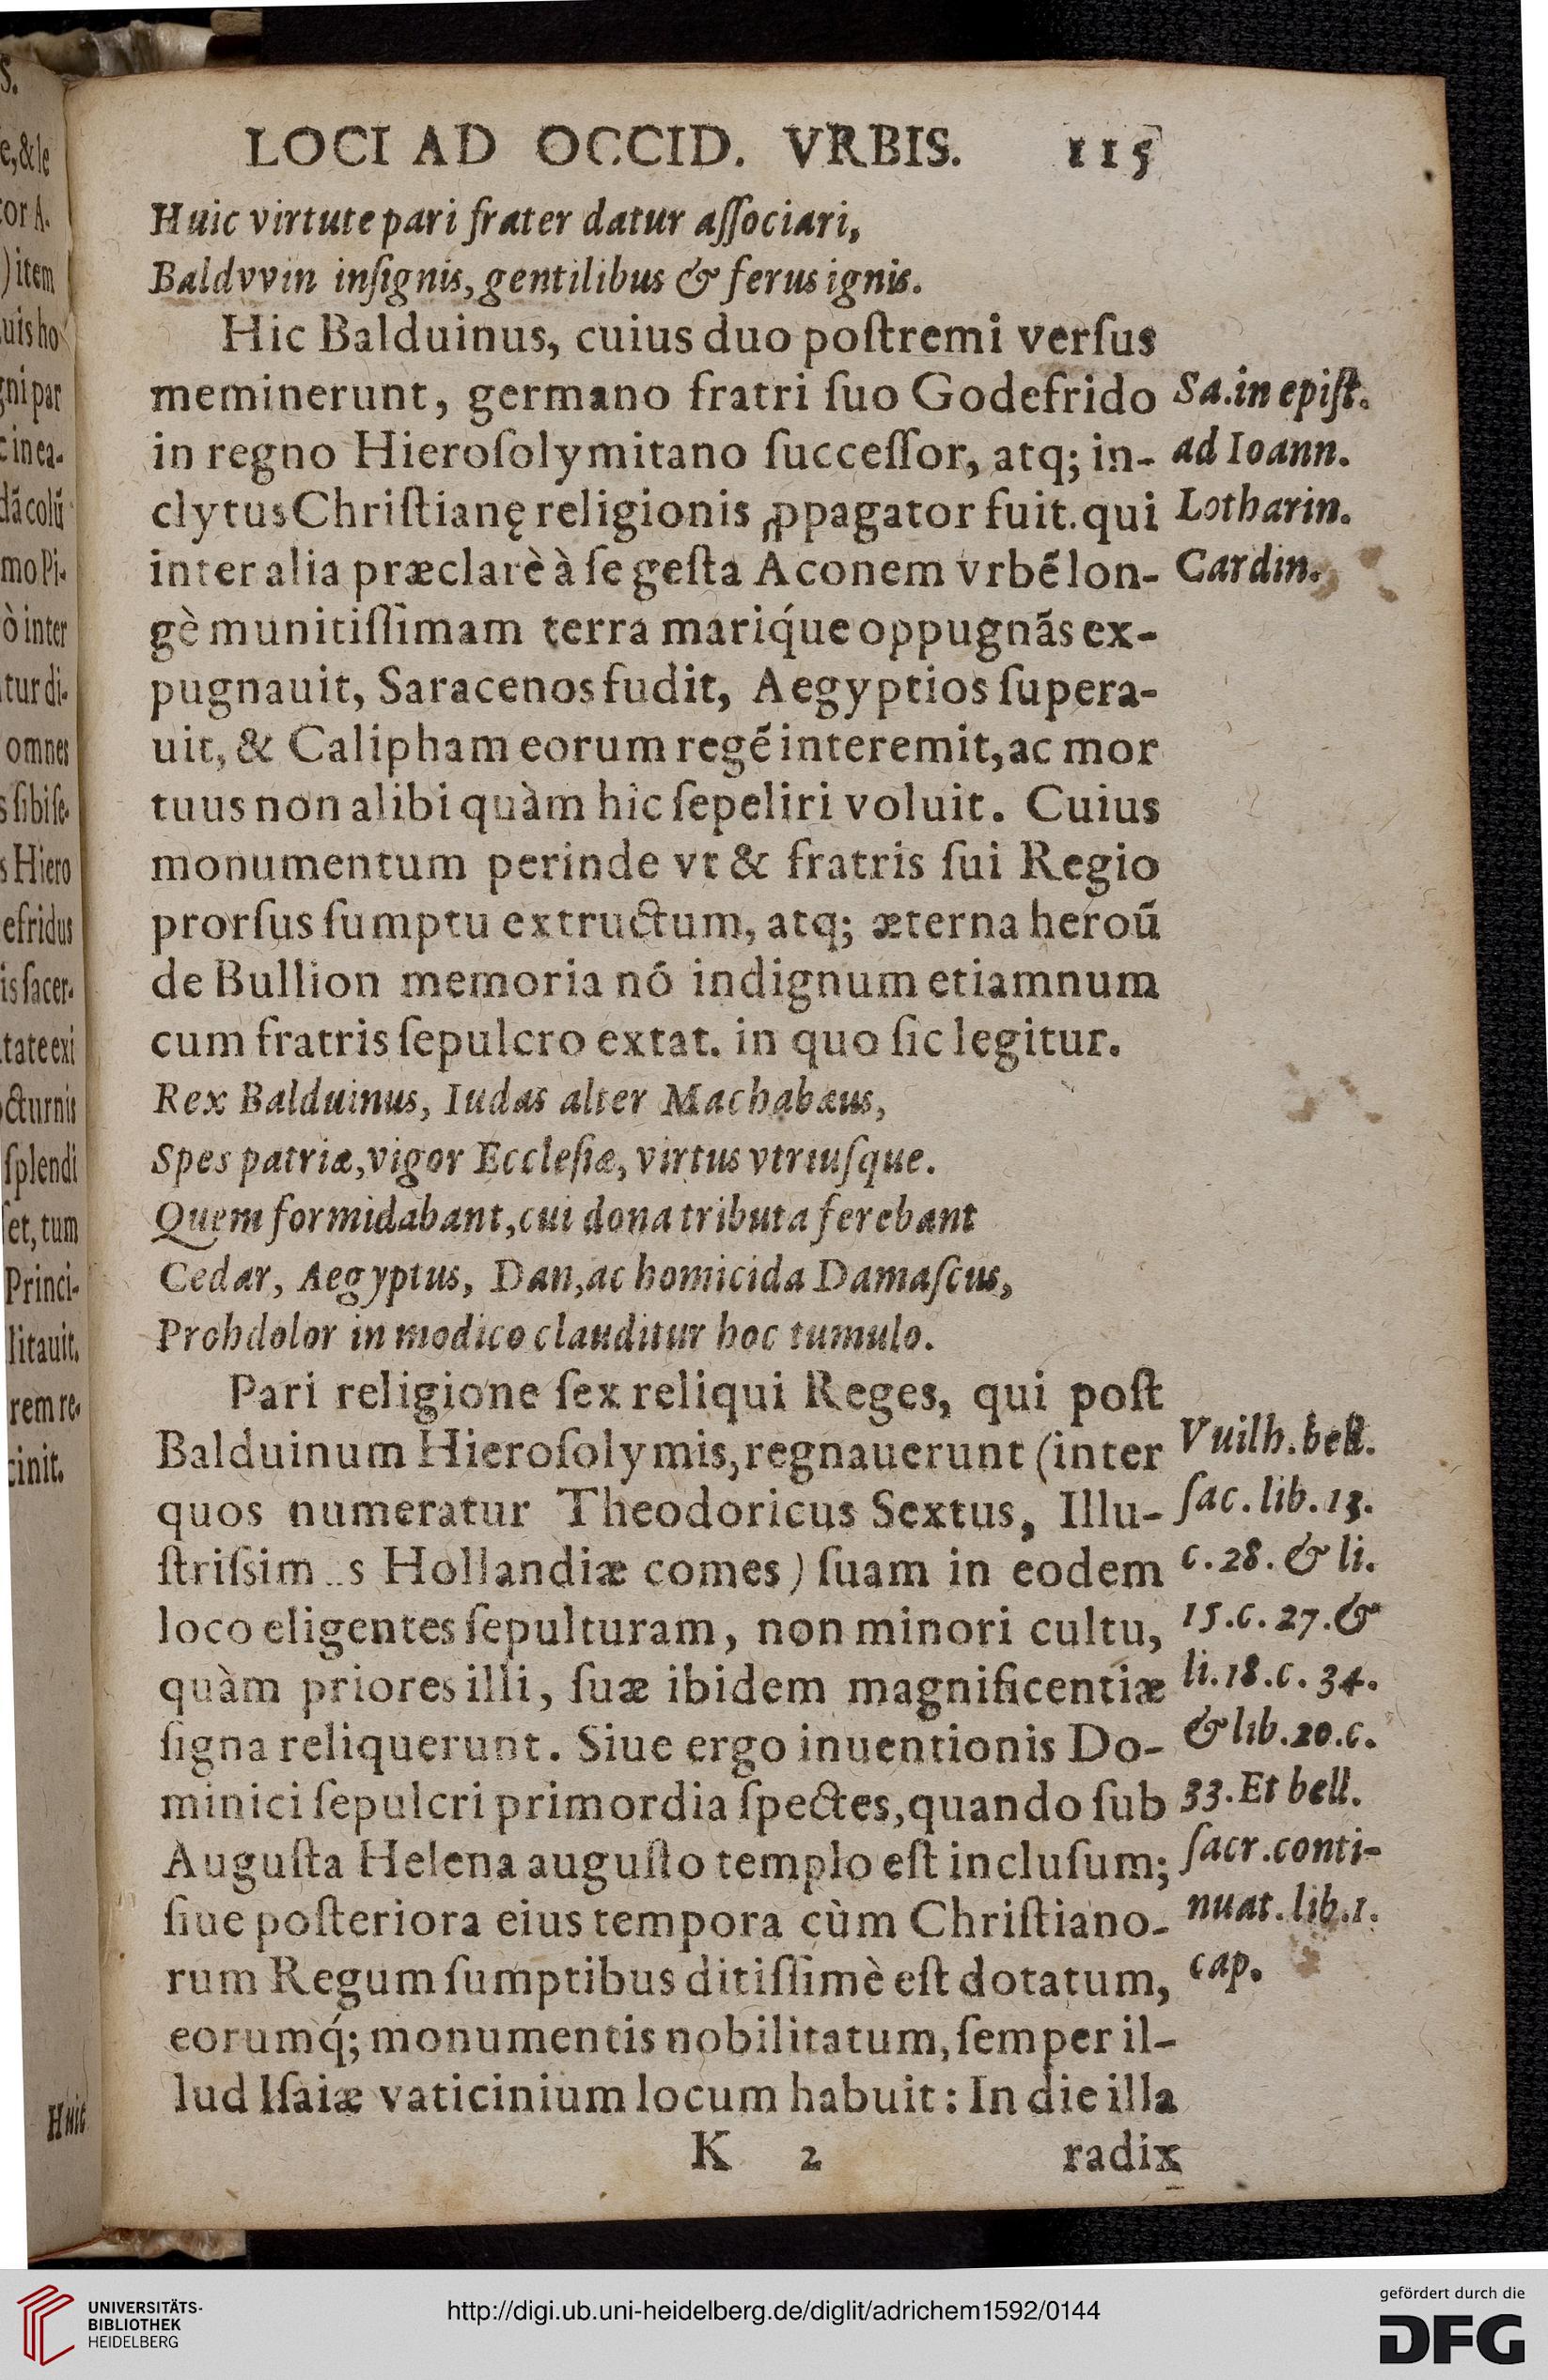 LOCI AD OCCID. VRBIS. 115
Huic virtute pari frater datur aſſociari,
Baldvvin inſignis, gentilibus & ferus ignis.
Hic Balduinus, cuius duo poſtremi verſus
meminerunt, germano fratri ſuo Godefrido
in regno Hieroſolymitano ſucceſſor, atq; in-
clytus Chriſtianę religionis ꝓpagator fuit. qui
inter alia præclarè à ſe geſta Aconem vrbẽ lon-
gè munitiſſimam terra mariq́ue oppugnãs ex-
pugnauit, Saracenos fudit, Aegyptios ſupera-
uit, & Calipham eorum regẽ interemit, ac mor
tuus non alibi quàm hic ſepeliri voluit. Cuius
monumentum perinde vt & fratris ſui Regio
prorſus ſumptu extructum, atq; æterna heroũ
de Bullion memoria nõ indignum etiamnum
cum fratris ſepulcro extat. in quo ſic legitur.
Rex Balduinus, Iudas alter Machabæus,
Spes patriæ, vigor Eccleſiæ, virtus vtriuſque.
Quem formidabant, cui dona tributa ferebant
Cedar, Aegyptus, Dan, ac homicida Damaſcus,
Prohdolor in modico clauditur hoc tumulo.
Pari religione ſex reliqui Reges, qui poſt
Balduinum Hieroſolymis, regnauerunt (inter
quos numeratur Theodoricus Sextus, Illu-
ſtriſsim s Hollandiæ comes) ſuam in eodem
loco eligentes ſepulturam, non minori cultu,
quàm priores illi, ſuæ ibidem magnificentiæ
ſigna reliquerunt. Siue ergo inuentionis Do-
minici ſepulcri primordia ſpectes, quando ſub
Auguſta Helena auguſto templo eſt incluſum;
ſiue poſteriora eius tempora cùm Chriſtiano-
rum Regum ſumptibus ditiſſimè eſt dotatum,
eorumq́; monumentis nobilitatum, ſemper il-
lud Iſaiæ vaticinium locum habuit: In die illa
K 2 radix
Sa. in epiſt.
ad Ioann.
Lotharin.
Cardin.
Vuilh. bell.
ſac. lib. 13.
c. 28. & li.
15. c. 27. &
li. 18. c. 34.
& lib. 20. c.
33. Et bell.
ſacr. conti-
nuat. lib. 1.
cap.
S.
e, & le
tor A.
) item
uis ho
gni par
c in ea-
dã colũ
mo Pi-
ò inter
tur di-
omnes
s ſibi ſe-
s Hiero
efridus
is ſacer-
tate exi
octurnis
ſplendi
ſet, tum
Princi-
litauit.
rem re-
cinit.
Huic
UNIVERSITÄTS-
BIBLIOTHEK
HEIDELBERG
http://digi.ub.uni-heidelberg.de/diglit/adrichem1592/0144
gefördert durch die
DFG